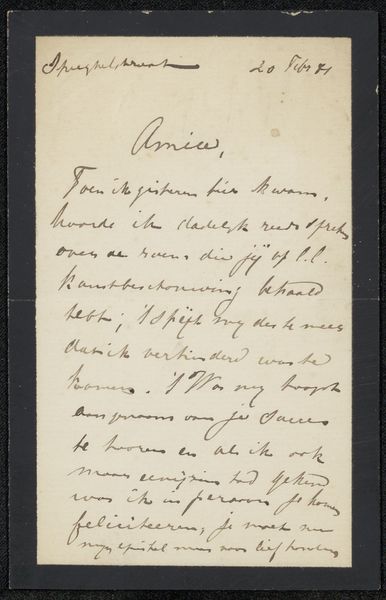 Spiegelstraat 20 Febr 81
Amice,
Toen ik gisteren hier kwam,
hoorde ik dadelijk reeds spreken
over de roem die jij op l.l.
kunstbeschouwing behaald
hebt; 't Spijt my des te meer
dat ik verhinderd was te
komen. 't Was my hoogst
aangenaam van je Succes
te hooren en als ik ook
maar eenigzins tyd gehad
was ik in persoon je komen
feliciteeren; je moet nu
myn epistel maar voor lief houden